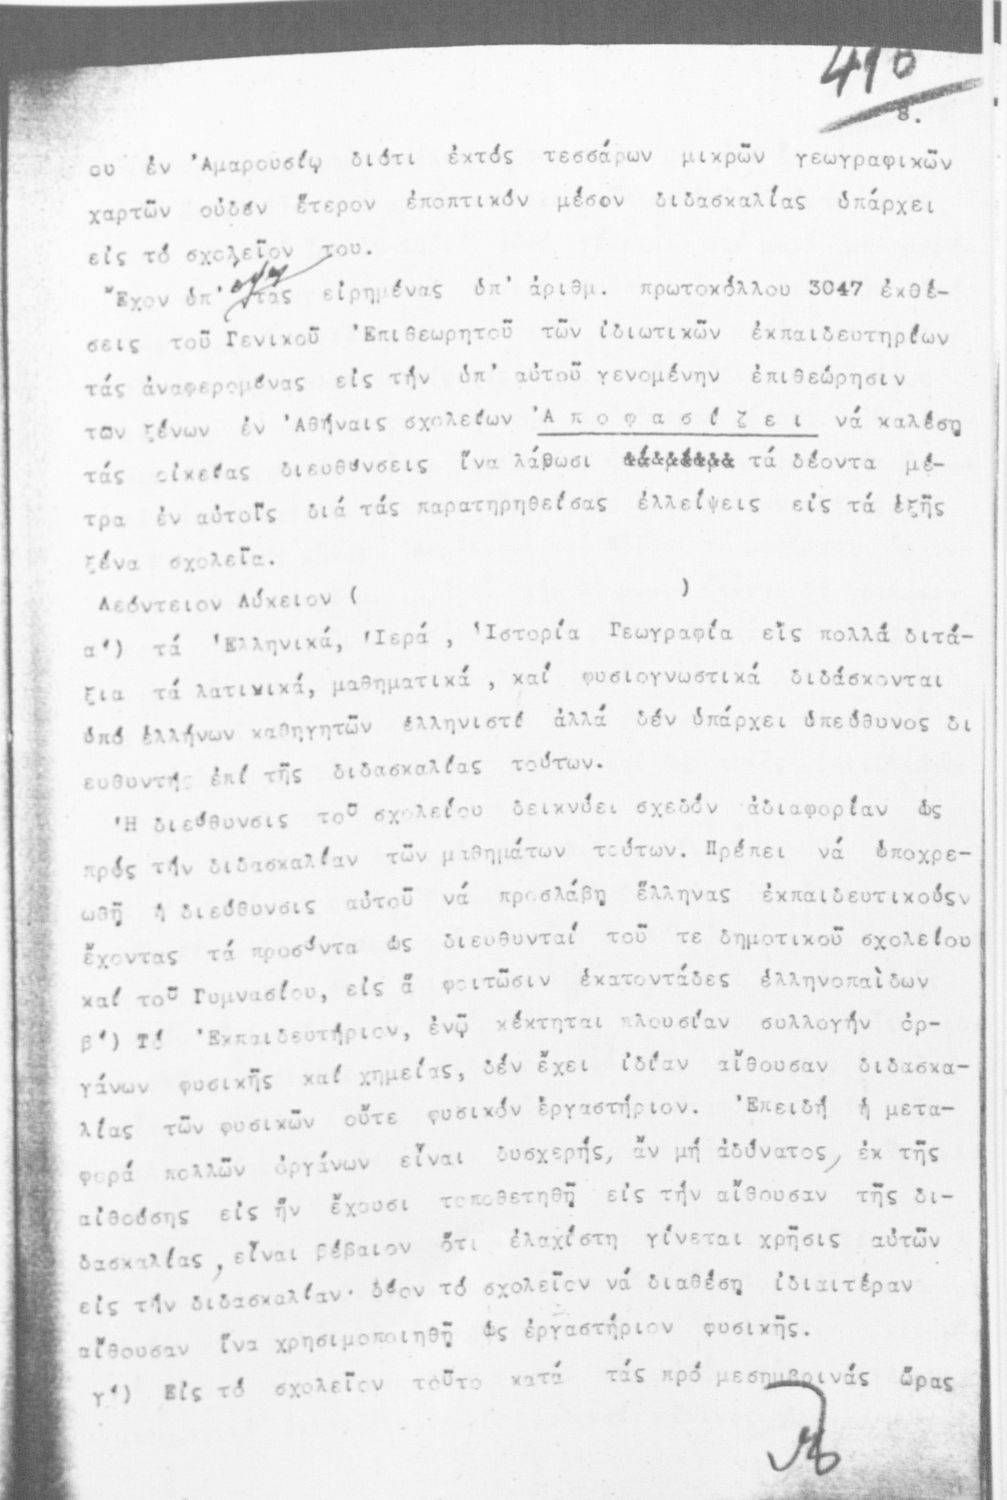 410
8.
ου ἐν Ἀμαρουσίῳ διότι ἐκτός τεσσάρων μικρῶν γεωγραφικῶν
χαρτῶν οὐδέν ἕτερον ἐποπτικόν μέσον διδασκαλίας ὑπάρχει
εἰς τό σχολεῖον του.
Ἔχον ὑπ' ὄψη τάς εἰρημένας ὑπ' ἀριθμ. πρωτοκόλλου 3047 ἐκθέ-
σεις τοῦ Γενικοῦ Ἐπιθεωρητοῦ τῶν ἰδιωτικῶν ἐκπαιδευτηρίων
τάς ἀναφερομένας εἰς τήν ὑπ' αὐτοῦ γενομένην ἐπιθεώρησιν
των ξένων ἐν Ἀθήναις σχολείων Ἀ π ο φ α σ ί ζ ε ι νά καλέσῃ
τάς οἰκείας διευθύνσεις ἵνα λάβωσι τά δέοντα μέ-
τρα ἐν αὐτοῖς διά τάς παρατηρηθείσας ἐλλείψεις εἰς τά ἑξῆς
ξένα σχολεῖα.
Λεόντειον Λύκειον ( )
α') τά Ἑλληνικά, Ἱερά , Ἱστορία Γεωγραφία εἰς πολλά διτά-
ξια τά λατινικά, μαθηματικά , καί φυσιογνωστικά διδάσκονται
ὑπό ἑλλήνων καθηγητῶν ἑλληνιστί ἀλλά δέν ὑπάρχει ὑπεύθυνος δι
ευθυντής ἐπί τῆς διδασκαλίας τούτων.
Ἡ διεύθυνσις τοῦ σχολείου δεικνύει σχεδόν ἀδιαφορίαν ὡς
πρός τήν διδασκαλίαν τῶν μαθημάτων τούτων. Πρέπει νά ὑποχρε-
ωθῇ ἡ διεύθυνσις αὐτοῦ νά προσλάβῃ ἕλληνας ἐκπαιδευτικούςν
ἔχοντας τά προσόντα ὡς διευθυνταί τοῦ τε δημοτικοῦ σχολείου
καί τοῦ Γυμνασίου, εἰς ἅ φοιτῶσιν ἑκατοντάδες ἑλληνοπαίδων
β') Τό Ἐκπαιδευτήριον, ἐνῷ κέκτηται πλουσίαν συλλογήν ὀρ-
γάνων φυσικῆς καί χημείας, δέν ἔχει ἰδίαν αἴθουσαν διδασκα-
λίας τῶν φυσικῶν οὔτε φυσικόν ἐργαστήριον. Ἐπειδή ἡ μετα-
φορά πολλῶν ὀργάνων εἶναι δυσχερής, ἄν μή ἀδύνατος, ἐκ τῆς
αἰθούσης εἰς ἥν ἔχουσι τοποθετηθῇ εἰς τήν αἴθουσαν τῆς δι-
δασκαλίας , εἶναι βέβαιον ὅτι ἐλαχίστη γίνεται χρῆσις αὐτῶν
εἰς τήν διδασκαλίαν· δέον τό σχολεῖον νά διαθέσῃ ἰδιαιτέραν
αἴθουσαν ἵνα χρησιμοποιηθῇ ὡς ἐργαστήριον φυσικῆς.
γ') Εἰς τό σχολεῖον τοῦτο κατά τάς πρό μεσημβρινάς ὥρας